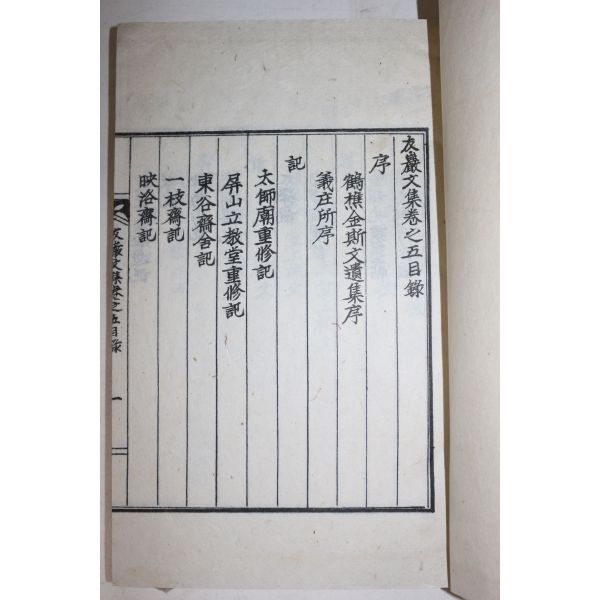 友巖文集卷之五目錄
序
鶴樵金斯文遺集序
義庄所序
記
太師廟重修記
屛山立敎堂重修記
東谷齋舍記
一枝齋記
映洛齋記
友巖文集卷之五目錄
一